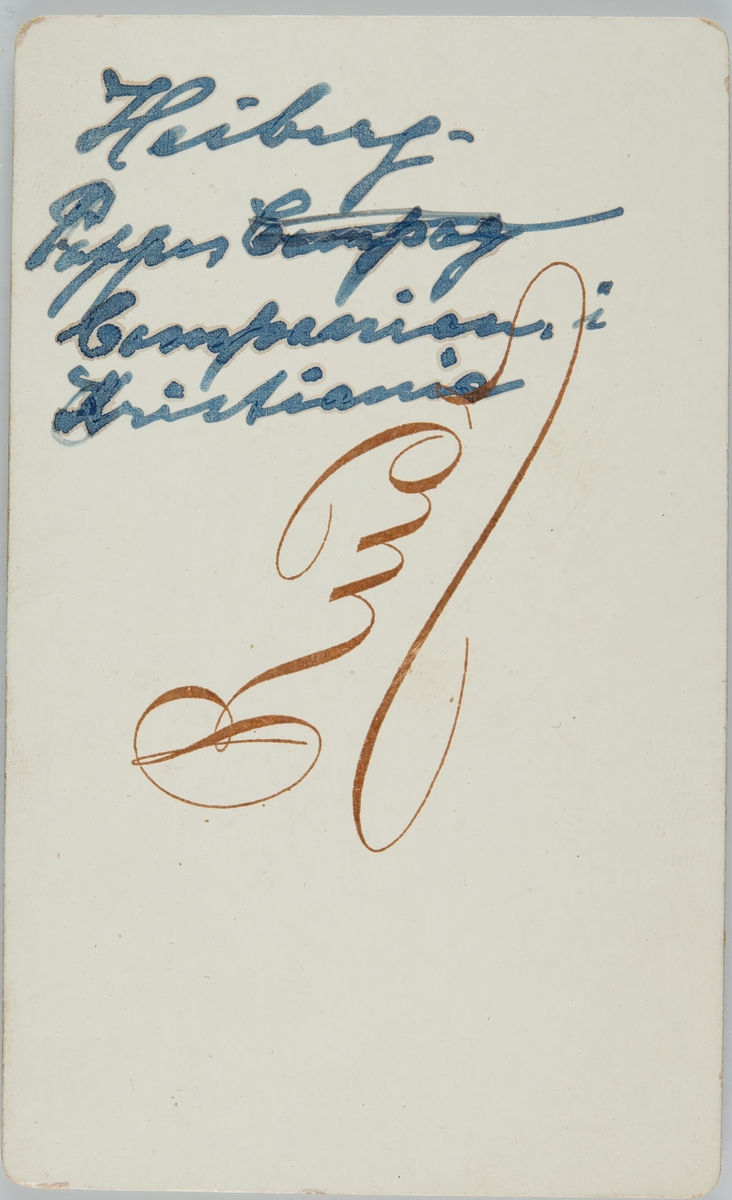 Heiberg-
Pappas Compag
Companion, i
Kristiania